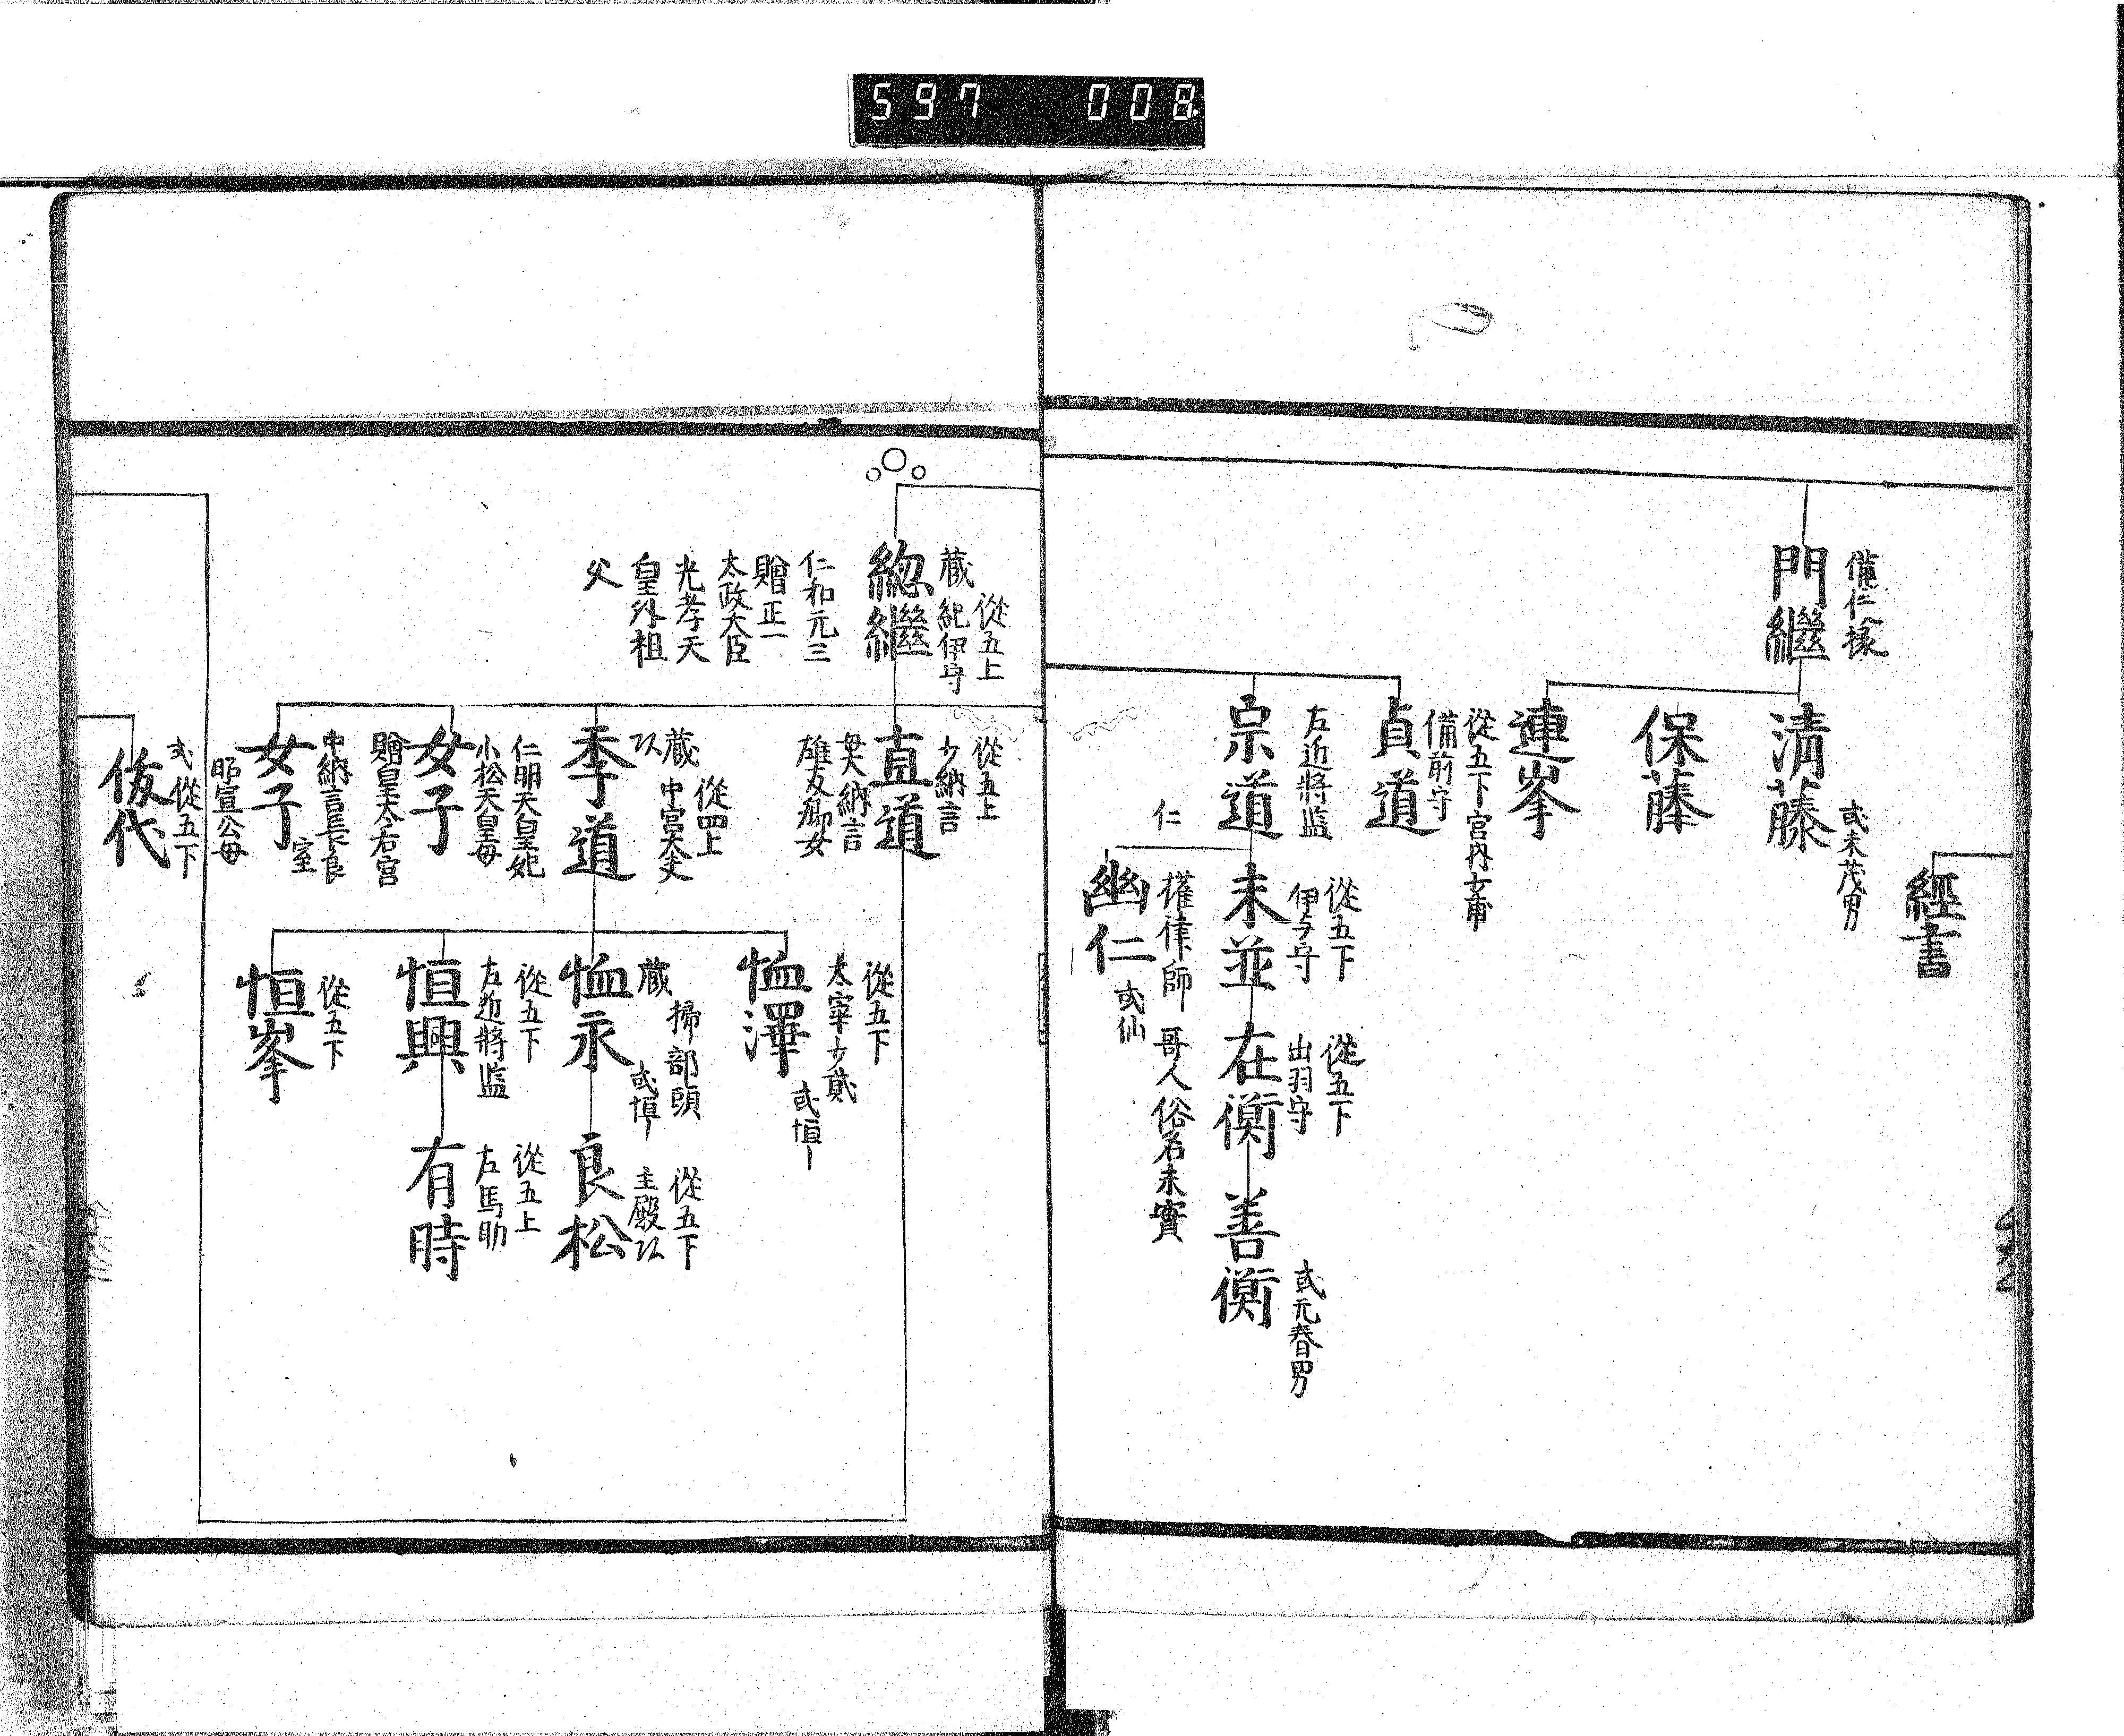 597 008
經書
備仁掾
門繼
或末茂男
清藤
保藤
連峯
從五下宮内少甫
備前守
貞道
左近將監
宗道
從五下
伊与守
末並
從五下
出羽守
在衡
或元春男
善衡
仁
權律師 哥人俗名未實
幽仁
或仙
從五上
蔵 紀伊守
総繼
仁和元三
贈正一
太政大臣
光孝天
皇外祖
父
從五上
少納言
直道
母大納言
雄友卿女
從四上
蔵 中宮大夫
季道
從五下
太宰少貳
恤澤
或恒
蔵 掃部頭
恤永
或恒
從五下
主殿
良松
仁明天皇妃
小松天皇母
女子
贈皇太后宮
從五下
左近將監
恒興
從五上
左馬助
有時
中納言長良
室
女子
昭宣公母
從五下
恒峯
從五下
或
代